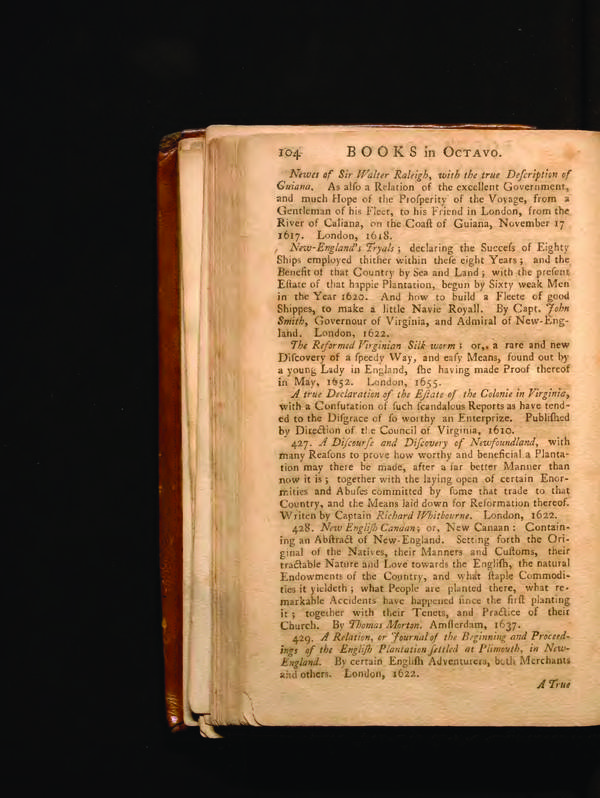 104 BOOKS in OCTAVO.
Newes of Sir Walter Raleigh, with the true Deſcription of
Guiana. As alſo a Relation of the excellent Government,
and much Hope of the Proſperity of the Voyage, from a
Gentleman of his Fleet, to his Friend in London, from the
River of Caliana, on the Coaſt of Guiana, November 17
1617. London, 1618.
New-England's Tryals; declaring the Succeſs of Eighty
Ships employed thither within theſe eight Years; and the
Benefit of that Country by Sea and Land; with the preſent
Eſtate of that happie Plantation, begun by Sixty weak Men
in the Year 1620. And how to build a Fleete of good
Shippes, to make a little Navie Royall. By Capt. John
Smith, Governour of Virginia, and Admiral of New-Eng-
land. London, 1622.
The Reformed Virginian Silk worm: or, a rare and new
Diſcovery of a ſpeedy Way, and eaſy Means, found out by
a young Lady in England, ſhe having made Proof thereof
in May, 1652. London, 1655.
A true Declaration of the Eſtate of the Colonie in Virginia,
with a Confutation of ſuch ſcandalous Reports as have tend-
ed to the Diſgrace of ſo worthy an Enterprize. Publiſhed
by Direction of the Council of Virginia, 1610.
427. A Diſcourſe and Diſcovery of Newfoundland, with
many Reaſons to prove how worthy and beneficial a Planta-
tion may there be made, after a far better Manner than
now it is; together with the laying open of certain Enor-
mities and Abuſes committed by ſome that trade to that
Country, and the Means laid down for Reformation thereof.
Writen by Captain Richard Whitbourne. London, 1622.
428. New Engliſh Canaan; or, New Canaan: Contain-
ing an Abſtract of New-England. Setting forth the Ori-
ginal of the Natives, their Manners and Cuſtoms, their
tractable Nature and Love towards the Engliſh, the natural
Endowments of the Country, and what ſtaple Commodi-
ties it yieldeth; what People are planted there, what re-
markable Accidents have happened ſince the firſt planting
it; together with their Tenets, and Practice of their
Church. By Thomas Morton. Amſterdam, 1637.
429. A Relation, or Journal of the Beginning and Proceed-
ings of the Engliſh Plantation ſettled at Plimouth, in New-
England. By certain Engliſh Adventurers, both Merchants
and others. London, 1622.
A True